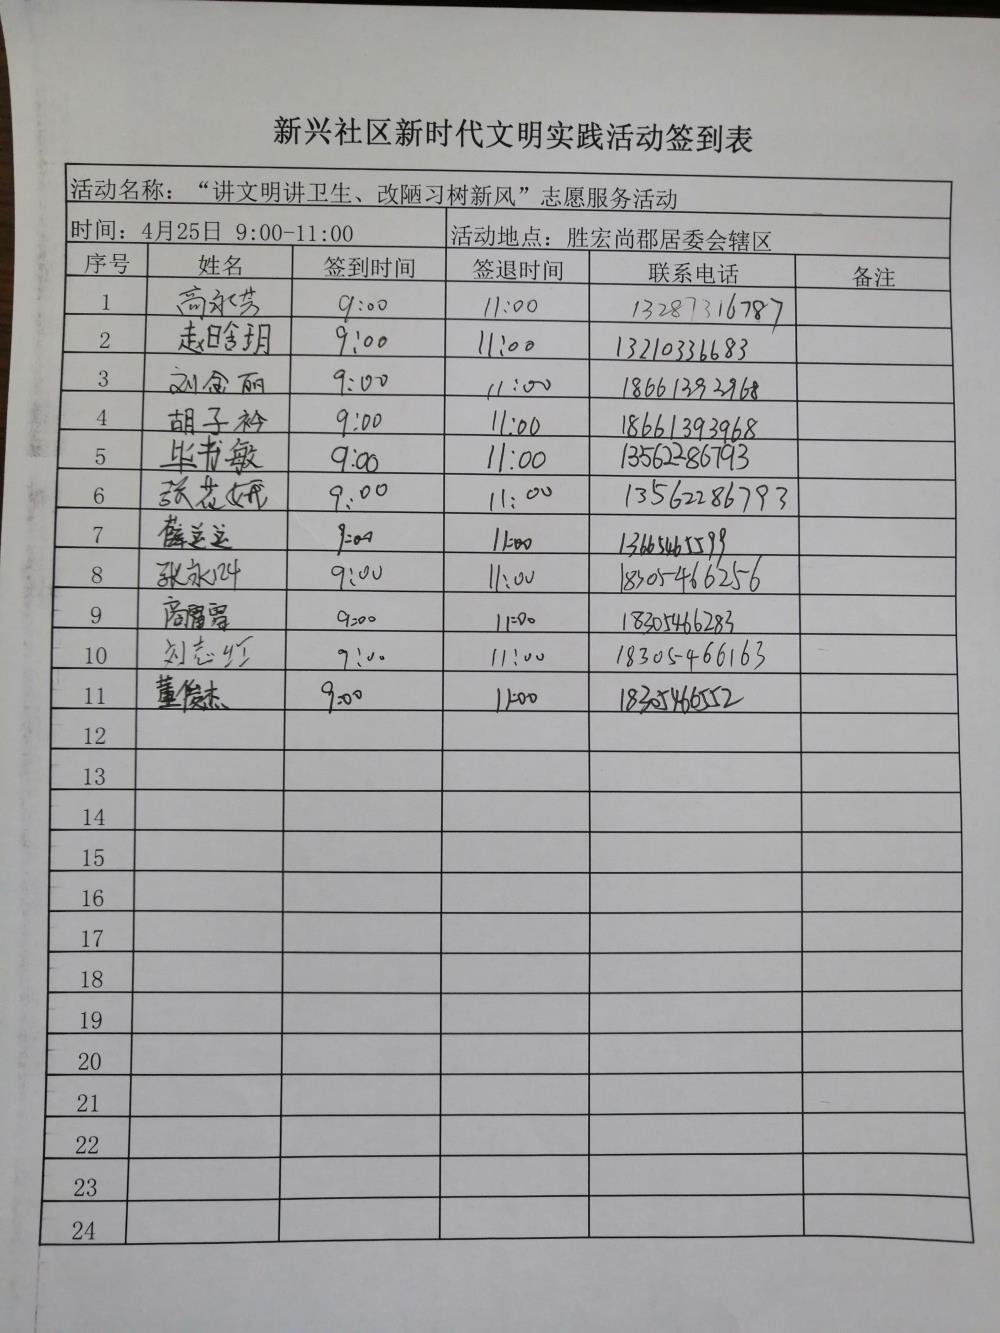 新兴社区新时代文明实践活动签到表
活动名称：“讲文明讲卫生、改陋习树新风”志愿服务活动
时间：4月25日 9:00-11:00 活动地点：胜宏尚郡居委会辖区
序号 姓名 签到时间 签退时间 联系电话 备注
1 高永芳 9:00 11:00 13287316787
2 赵晗玥 9:00 11:00 13210336683
3 刘金丽 9:00 11:00 18661392968
4 胡子衿 9:00 11:00 18661393968
5 毕书敏 9:00 11:00 13562286793
6 张花娥 9:00 11:00 13562286793
7 薛兰兰 9:00 11:00 13665465599
8 张永 9:00 11:00 18305466256
9 9:00 11:00 18305466283
10 刘志 9:00 11:00 18305466163
11 董俊杰 9:00 11:00 18305466552
12
13
14
15
16
17
18
19
20
21
22
23
24